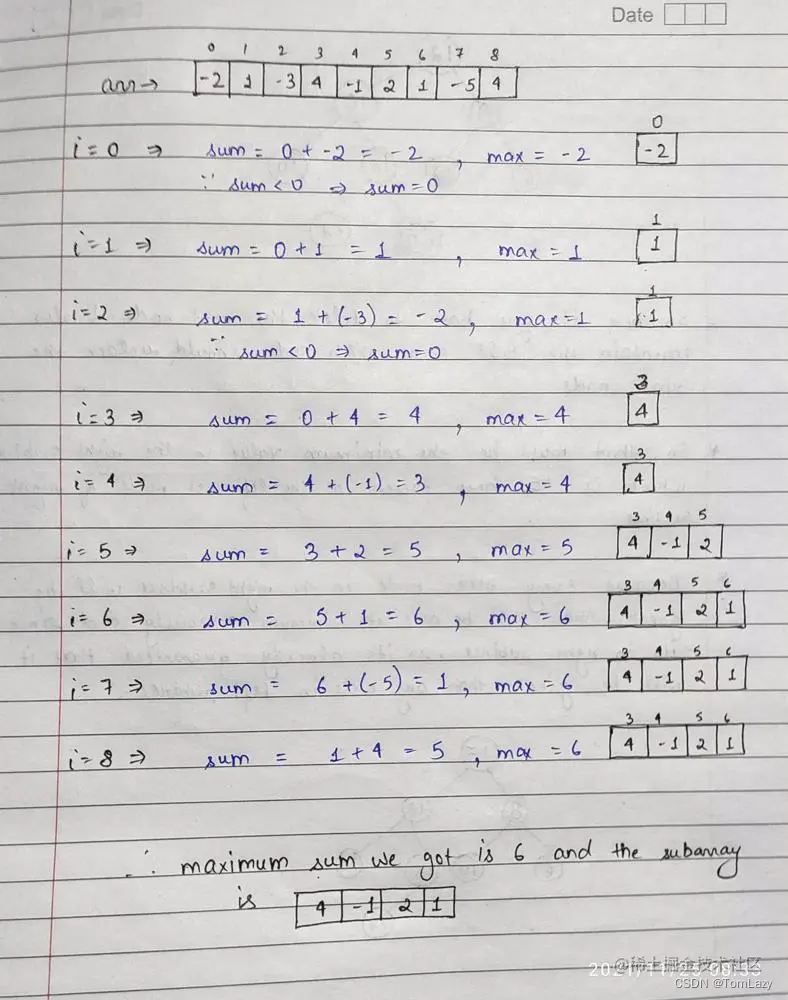 Date
0 1 2 3 4 5 6 7 8
arr → -2 1 -3 4 -1 2 1 -5 4
0
i = 0 ⇒ sum = 0 + -2 = -2 , max = -2 -2
∵ sum < 0 ⇒ sum = 0
1
i = 1 ⇒ sum = 0 + 1 = 1 , max = 1 1
1
i = 2 ⇒ sum = 1 + (-3) = -2 , max = 1 1
∵ sum < 0 ⇒ sum = 0
3
i = 3 ⇒ sum = 0 + 4 = 4 , max = 4 4
3
i = 4 ⇒ sum = 4 + (-1) = 3 , max = 4 4
3 4 5
i = 5 ⇒ sum = 3 + 2 = 5 , max = 5 4 -1 2
3 4 5 6
i = 6 ⇒ sum = 5 + 1 = 6 , max = 6 4 -1 2 1
3 4 5 6
i = 7 ⇒ sum = 6 + (-5) = 1 , max = 6 4 -1 2 1
3 4 5 6
i = 8 ⇒ sum = 1 + 4 = 5 , max = 6 4 -1 2 1
∴ maximum sum we got is 6 and the subarray
is 4 -1 2 1
@稀土掘金技术社区
CSDN @TomLazy